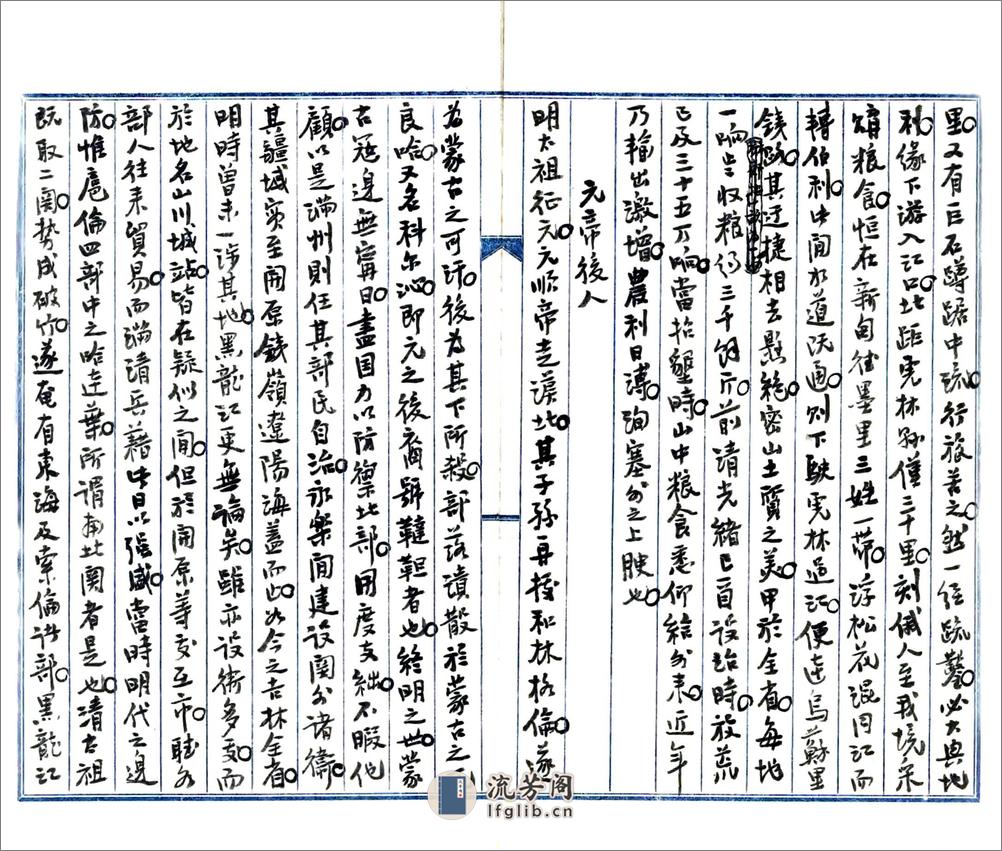 里又有巨石蹲踞中流行旅苦之然一經疏鑿必大興地
利緣下游入江口北距虎林縣僅二十里刻俄人至我境采
糧食恒在新甸徒墨里三姓一帶浮松花混同江而
轉伯利中間水道既通則下駛虎林過江便達烏蘇里
鐵路其迂捷相去懸絕密山土質之美甲於全省每地
一晌可收粮約三千餘斤前清光緒已酉設治時放荒
已及三十五万晌當招墾時山中粮食悉仰給外來近年
乃輸出激增農利日溥洵塞外之上腴也
元帝後人
明太祖征元元順帝走漠北其子孫再接和林格倫遂
為蒙古之可汗後為其下所殺部落潰散於蒙古之
良哈又名科尔沁即元之後裔號韃靼者也終明之世蒙
古寇邊無甯日盡國力以防禦北部用度支絀不暇他
顧以是滿州則任其部民自治永樂間建設關外諸衛
其疆域實至開原鐵嶺遼陽海蓋而止如今之吉林全省
明時曾未一涉其地黑龍江更無論矣雖亦設衛多處而
於地名山川城站皆在疑似之間但於開原等处互市聽各
部人往來貿易而滿清兵藉此日以强盛當時明代之邊
防惟扈倫四部中之哈達葉所謂南北関者是也清太祖
既取二関勢成破竹遂奄有東海及索倫諸部黑龍江
流芳阁
lfglib.cn